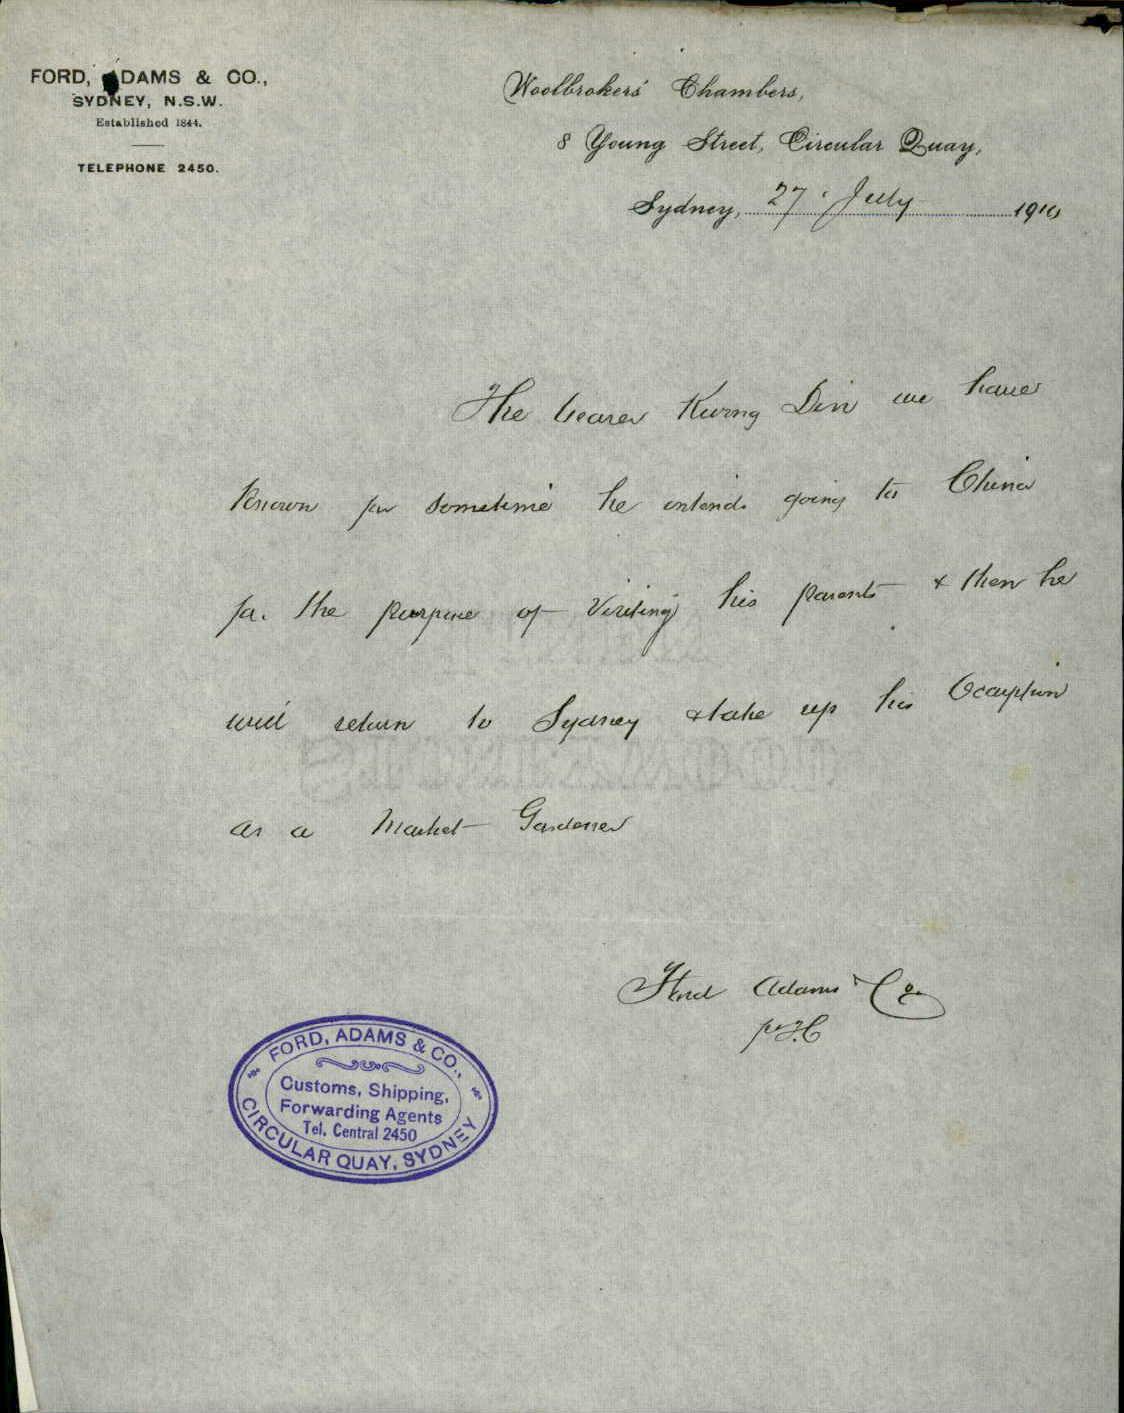 FORD, ADAMS & CO.,
SYDNEY, N.S.W.
Established 1844.
TELEPHONE 2450.
Woolbrokers' Chambers,
8 Young Street, Circular Quay,
Sydney, 27 July 1910
The bearer Kwong Din we have
known for sometime he intends going to China
for the purpose of visiting his parents & then he
will return to Sydney & take up his Occuption
as a Market Gardener
Ford Adams & Co
FORD, ADAMS & CO.,
Customs, Shipping,
Forwarding Agents
Tel. Central 2450
CIRCULAR QUAY, SYDNEY